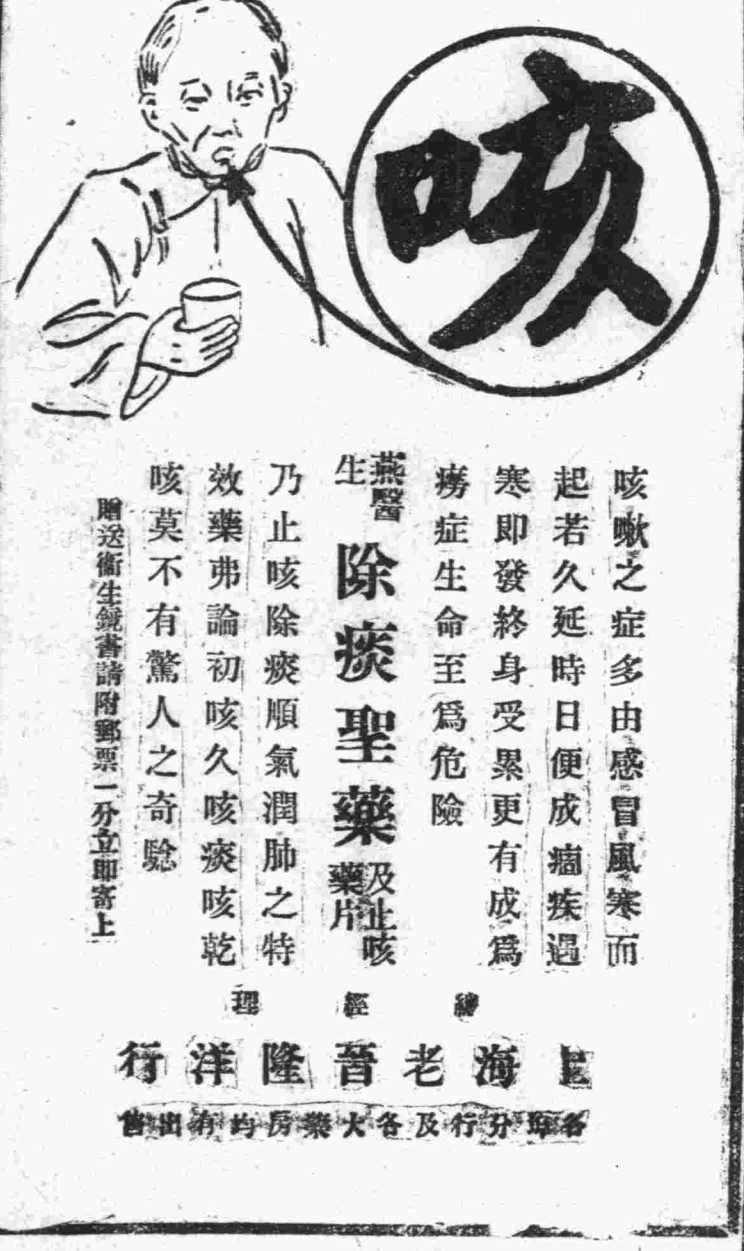 咳
咳嗽之症多由感冒風寒而
起若久延時日便成痼疾遇
寒即發終身受累更有成爲
癆症生命至爲危險
燕醫生
除痰聖藥
及止咳藥片
乃止咳除痰順氣潤肺之特
效藥弗論初咳久咳痰咳乾
咳莫不有驚人之奇驗
贈送衞生鏡書請附郵票一分立即寄上
總經理
上海老晉隆洋行
各埠分行及各大藥房均有出售